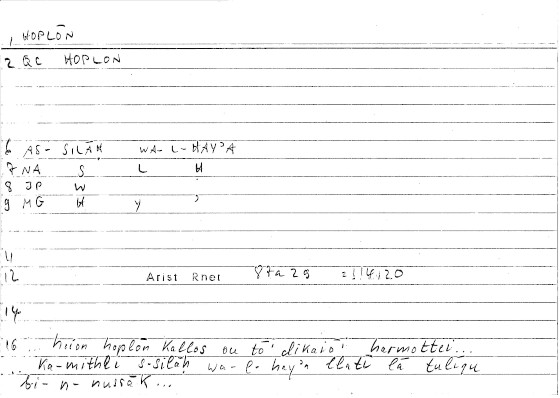 1 HOPLŌN
2 QC HOPLON
6 AS- SILĀḤ WA- L- HAY'A
7 NA S L Ḥ
8 JP W
9 MG H Y '
11
12 Arist Rhet 87a29 =114,20
14
16 ... hiōn hoplōn kallos ou tō dikaiō harmottei...
... ka-mithli s-silāḥ wa- l- hay'a llatī lā tulīqu
bi- n- nussāk...